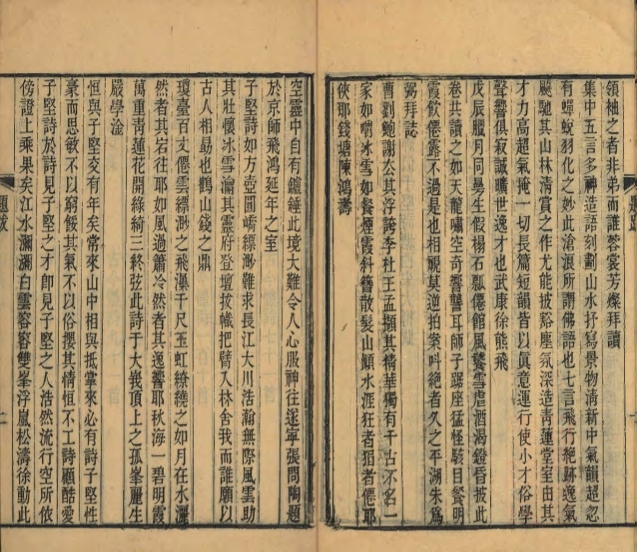 領袖之者非弟而誰蓉裳芳燦拜讀
集中五言多神造語刻劃山水抒寫景物清新中氣韻超忽
有蟬蛻羽化之妙此滄浪所謂佛語也七言飛行絕跡逸氣
飈馳其山林清賞之作尤能披豁塵氛深造青蓮堂室由其
才力高超氣掩一切長篇短韻皆以眞意運行使小才俗學
聲響俱寂誠曠世逸才也武康徐熊飛
戊辰臘月同學生假楊石瓢僊館風饕雪虐酒渴鐙昏披此
卷共讀之如天龍嘯空奇響警耳師子踞座猛怪駭目餐明
霞飲僊露不過是也相覩莫逆拍案叫絶者久之平湖朱爲
弼拜誌
曹劉鮑謝公其浮誇李杜王孟擷其精華獨有千古不名一
家如嚼冰雪如餐煙霞斜簪散髮山傾水涯狂者狷者僊耶
俠耶錢塘陳鴻壽
題跋
空靈中自有鑪錘此境大難令人心服神往遂寧張問陶題
於京師飛鴻延年之室
子堅詩如方壺圓嶠縹渺難求長江大川浩瀚無際風雲助
其壯懷冰雪瀹其靈府登壇拔幟把臂入林舍我而誰願以
古人相勗也鶴山錢之鼎
瓊臺百丈僊雲縹渺之飛瀑千尺玉虹繚繞之如月在水灑
然者其岩往耶如風過簫泠然者其逸響耶秋海一碧明霞
萬重靑蓮花開綠綺三終弦此詩于大峩頂上之孤峯麗生
嚴學淦
恒與子堅交有年矣常來山中相與抵掌來必有詩子堅性
豪而思敏不以窮餒其氣不以俗攖其情恒不工詩顧酷愛
子堅詩於詩見子堅之才卽見子堅之人浩然流行空所依
傍證上乘果矣江水瀰瀰白雲容容雙峯浮嵐松濤徐動此
題跋
二